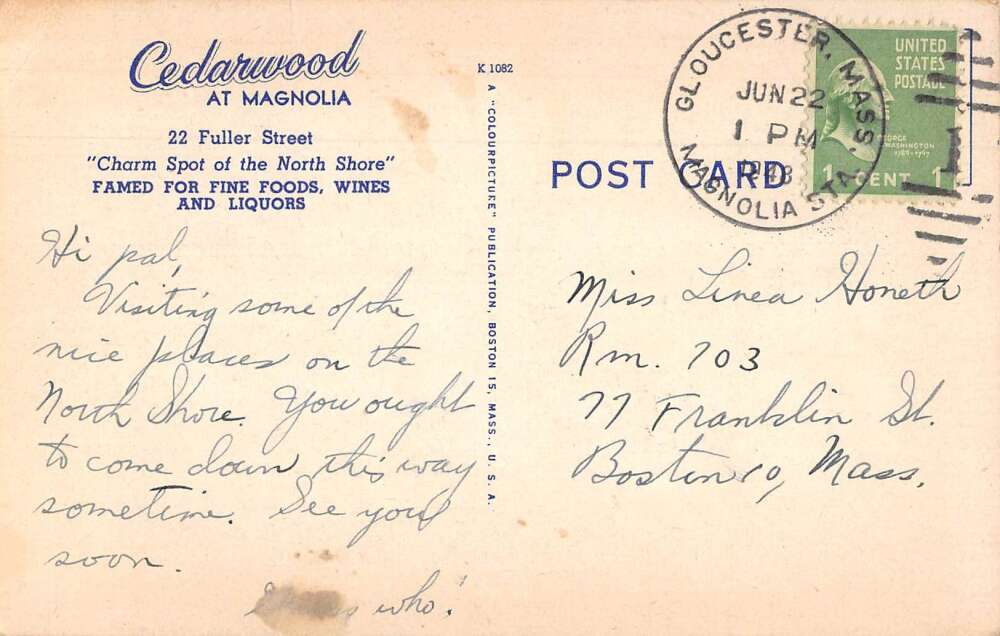 Cedarwood
AT MAGNOLIA
22 Fuller Street
"Charm Spot of the North Shore"
FAMED FOR FINE FOODS, WINES
AND LIQUORS
Hi pal,
Visiting some of the
nice places on the
North Shore. You ought
to come down this way
sometime. See you
soon.
who!
K 1082
A "COLOURPICTURE" PUBLICATION, BOSTON 15, MASS., U. S. A.
POST CARD
GLOUCESTER, MASS.
JUN 22
1 PM
1948
MAGNOLIA STA.
UNITED
STATES
POSTAGE
GEORGE
WASHINGTON
1789-1797
1 CENT 1
Miss Linea Honeth
Rm. 703
77 Franklin St.
Boston 10, Mass.